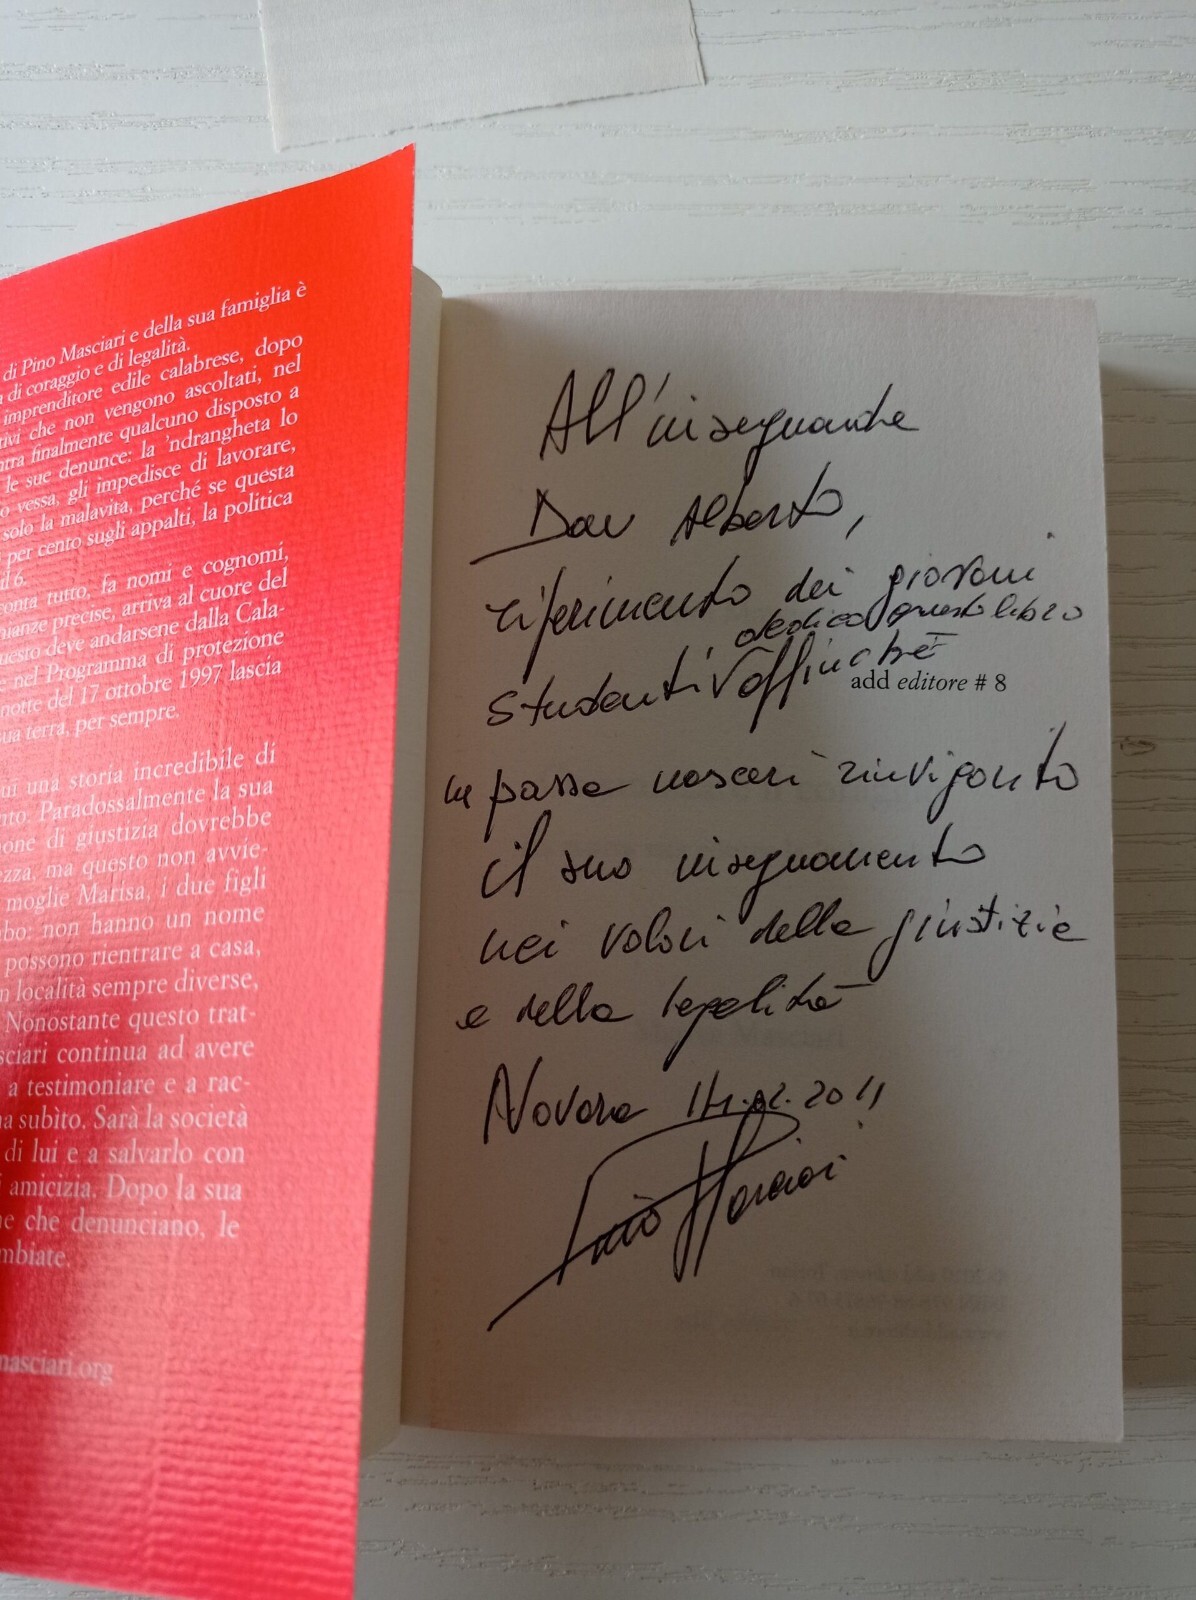 di Pino Masciari e della sua famiglia è
di coraggio e di legalità.
imprenditore edile calabrese, dopo
tivi che non vengono ascoltati, nel
ntra finalmente qualcuno disposto a
le sue denunce: la 'ndrangheta lo
o vessa, gli impedisce di lavorare,
solo la malavita, perché se questa
per cento sugli appalti, la politica
il 6.
conta tutto, fa nomi e cognomi,
nianze precise, arriva al cuore del
uesto deve andarsene dalla Cala-
e nel Programma di protezione
notte del 17 ottobre 1997 lascia
sua terra, per sempre.
ui una storia incredibile di
nto. Paradossalmente la sua
one di giustizia dovrebbe
ezza, ma questo non avvie-
moglie Marisa, i due figli
bo: non hanno un nome
possono rientrare a casa,
n località sempre diverse,
Nonostante questo trat-
sciari continua ad avere
a testimoniare e a rac-
ha subìto. Sarà la società
di lui e a salvarlo con
i amicizia. Dopo la sua
ne che denunciano, le
mbiate.
masciari.org
All'insegnante
Don Alberto,
riferimento dei giovani
dedico questo libro
studenti, affinché
add editore # 8
ne possa nascere rinvigorito
il suo insegnamento
nei valori della giustizia
e della legalità
Novara 14.02.2011
Pino Masciari